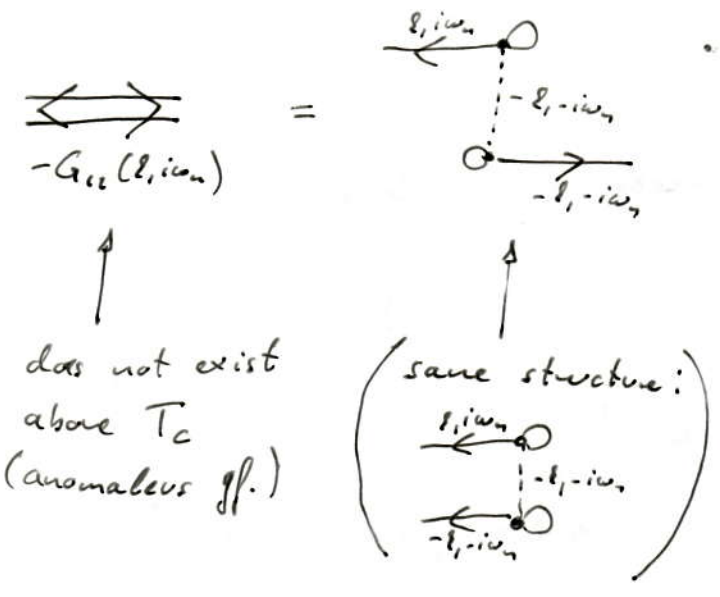 k, iωₙ
=
-k, -iωₙ
-G₁₂(k, iωₙ)
-k, -iωₙ
does not exist
above T_c
(anomalous gf.)
(same structure:
k, iωₙ
-k, -iωₙ
-k, -iωₙ)